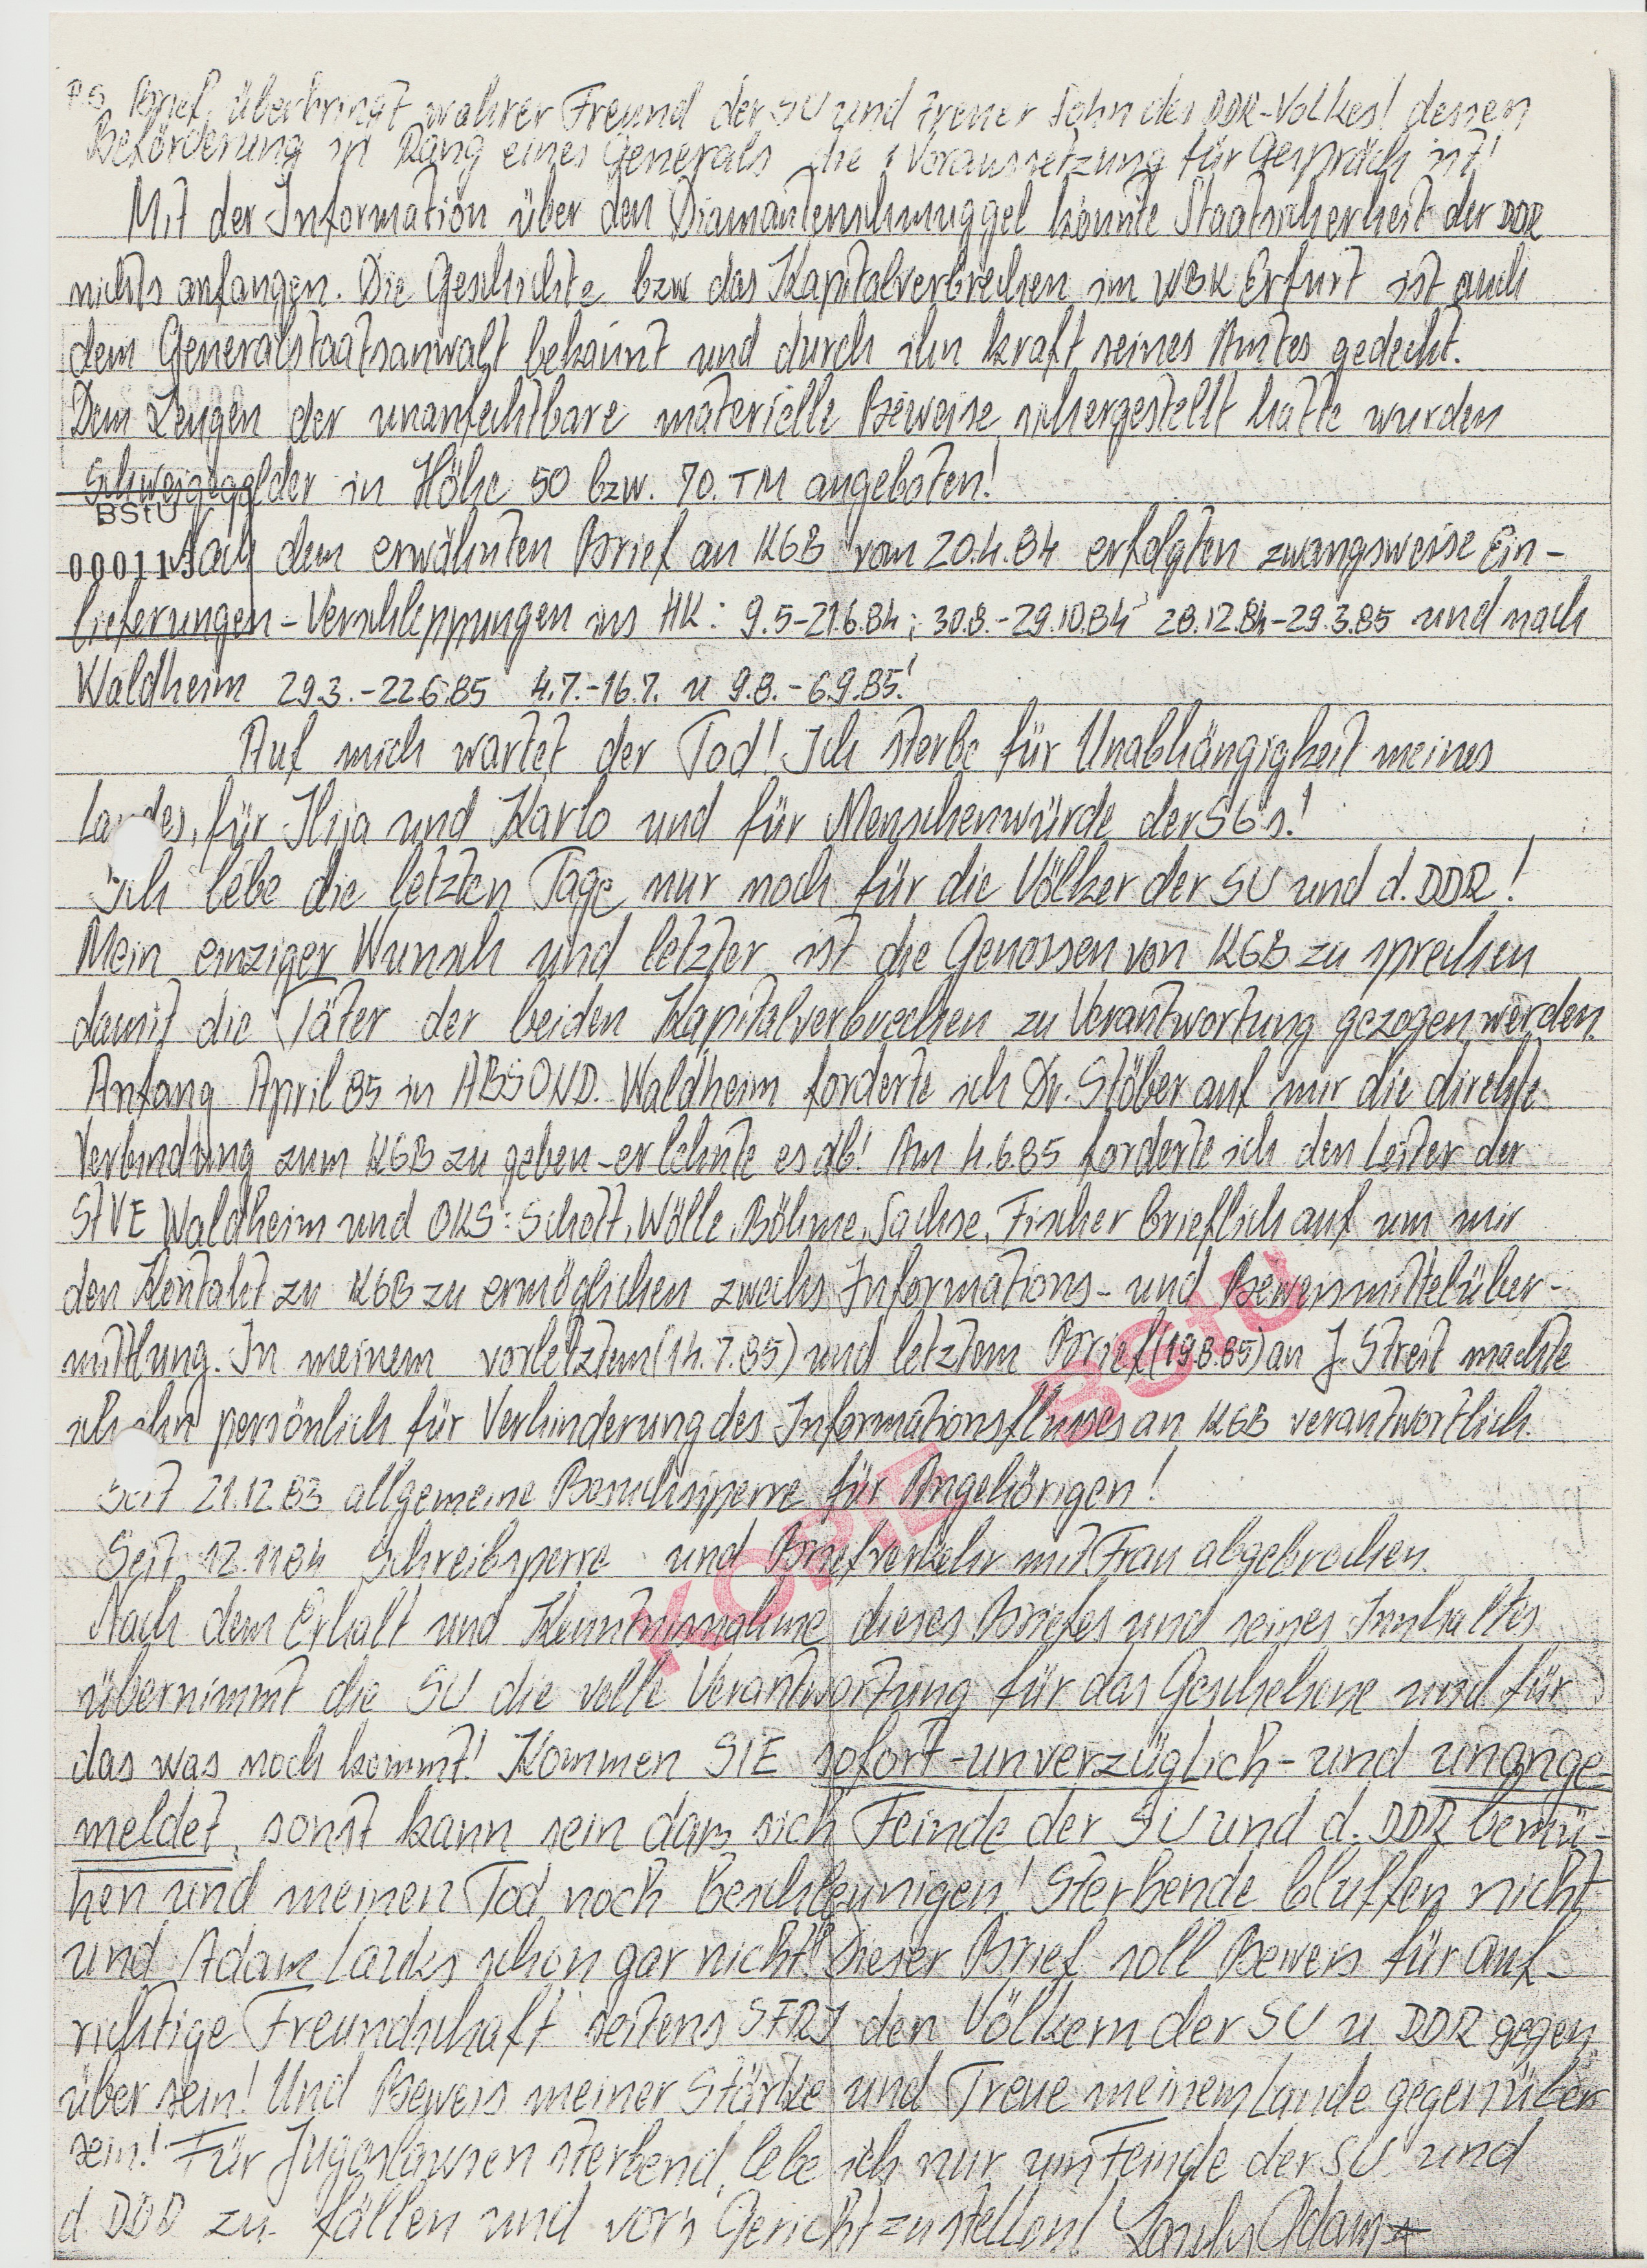 P.S. Brief überbringt wahrer Freund der SU und treuer Sohn des DDR-Volkes! dessen
Beförderung in Rang eines Generals die Voraussetzung für Gespräch ist!
Mit der Information über den Diamantenschmuggel könnte Staatsicherheit der DDR
nichts anfangen. Die Geschichte bzw das Kapitalverbrechen im WBK Erfurt ist auch
dem Generalstaatsanwalt bekannt und durch ihn kraft seines Amtes gedeckt.
Dem Zeugen der unanfechtbare materielle Beweise sichergestellt hatte wurden
Schweigegelder in Höhe 50 bzw. 70. TM angeboten!
BStU
Nach dem erwähnten Brief an KGB vom 20.4.84 erfolgten zwangsweise Ein-
000113
lieferungen-Verschleppungen ins HK: 9.5-21.6.84; 30.8.-29.10.84 28.12.84-29.3.85 und nach
Waldheim 29.3.-22.6.85 4.7.-16.7. u 9.8.-6.9.85!
Auf mich wartet der Tod! Ich sterbe für Unabhängigkeit meines
Landes, für Ilija und Karlo und für Menschenwürde der SG's!
Ich lebe die letzten Tage nur noch für die Völker der SU und d. DDR!
Mein einziger Wunsch und letzter ist die Genossen von KGB zu sprechen
damit die Täter der beiden Kapitalverbrechen zu Verantwortung gezogen werden.
Anfang April 85 in ABSOND. Waldheim forderte ich Dr. Stöber auf mir die direkte
Verbindung zum KGB zu geben-er lehnte es ab! Am 4.6.85 forderte ich den Leiter der
StVE Waldheim und OKS: Schott, Wölle, Böhme, Sachse, Fischer brieflich auf um mir
den Kontakt zu KGB zu ermöglichen zwecks Informations- und Beweismittelüber-
mittlung. In meinem vorletztem (14.7.85) und letztem Brief (19.8.85) an J. Streit machte
ich ihn persönlich für Verhinderung des Informationsflusses an KGB verantwortlich.
Seit 21.12.83 allgemeine Besuchssperre für Angehörigen!
Seit 12.11.84 Schreibsperre und Briefverkehr mit Frau abgebrochen.
KOPIE BStU
Nach dem Erhalt und Kenntnisnahme dieses Briefes und seines Innhaltes
übernimmt die SU die volle Verantwortung für das Geschehene und für
das was noch kommt! Kommen SIE sofort-unverzüglich-und unange-
meldet, sonst kann sein dass sich Feinde der SU und d. DDR bemü-
hen und meinen Tod noch beschleunigen! Sterbende bluffen nicht
und Adam Lauks schon gar nicht! Dieser Brief soll Beweis für auf-
richtige Freundschaft seitens SFRJ den Völkern der SU u DDR gegen
über sein! Und Beweis meiner Stärke und Treue meinem Lande gegenüber
sein! Für Jugoslawien sterbend, lebe ich nur um Feinde der SU und
d. DDR zu fällen und vor's Gericht zu stellen! Lauks Adam